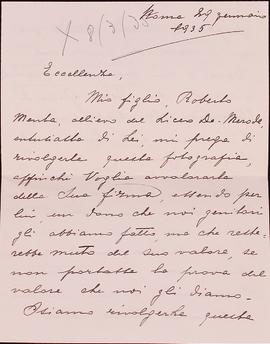 X 8/3/35
Roma 29 gennaio
1935
Eccellenza,
Mio figlio, Roberto
allievo del Liceo De-Merode,
entusiasta di Lei, mi prega di
rivolgerle questa fotografia,
affinchè Voglia avvalorarla
della Sua firma, essendo per
lui, un dono che noi genitori
gli abbiamo fatto, ma che reste-
rebbe muto del suo valore, se
non portasse la prova del
valore che noi gli diamo.
Osiamo rivolgerle questa